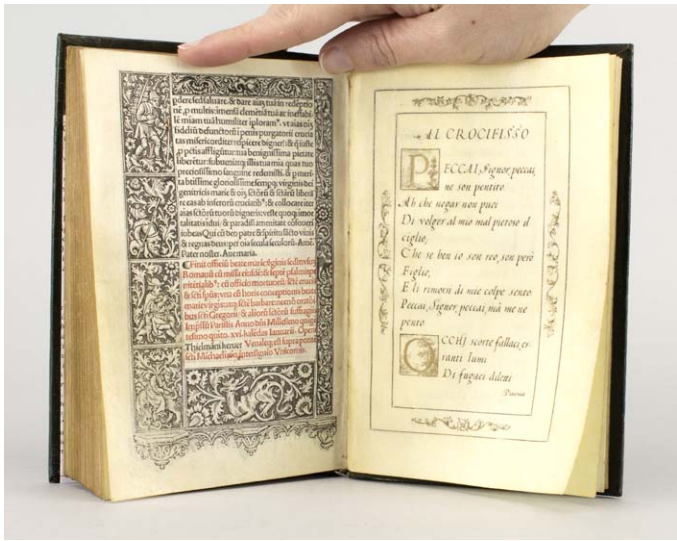 pderesed saluare. & dare aiaz tuā in redēptio
nē p multis: imensā clemētiā tuā & ineffabi
lē miam tuā humiliter iploram⁹. vt aias oīz
fideliū defunctorū i penis purgatorii crucia
tas misericorditer respicere digneris: & q̄ iuste
p pctis affligūtur: tua benignissima pietate
liberētur: & subueniat q̄s illis tua mīa quas tuo
preciosissimo sanguine redemisti. & p meri-
ta btissime gloriosissime semp̄q virginis dei
genitricis marie & oīz sctōrū & sctārū liberā
re eas ab inferorū cruciatib⁹: & collocare inter
aias sctōrū tuorū digneris: veste quoq̄ imor
talitatis idui/ & paradisi amenitate cōfoueri
iubeas Qui cū deo patre & spiritu sācto viuis
& regnas deus: per oīa secula seculorū. Amē.
Pater noster. Aue maria.
¶ Finit officiū beate marie v̄ginis scd̄m vsum
Romanū cū missa eiusdē: & septē psalmis pe
nitētialib⁹: cū officio mortuorū: sctē crucis
& scti spūs: vna cū horis conceptionis beate
marie virginis: & sctē barbare: necnō oratiōi
bus scti Gregorii & aliorū sctōrū suffragiis
Impssū Parisiis Anno dñi Millesimo qnige
tesimo quito. xvi. kalēdas Ianuarii. Opera
Thielmāni keruer Venaleq̄ est supra pontē
scti Michaelis in intersignio Vnicornis.
AL CROCIFISSO
PECCAI, Signor, peccai,
ne son pentito
Ah che negar non puoi
Di volger al mio mal pietoso il
ciglio,
Che se ben io son reo, son però
Figlio,
E li rimorsi di mie colpe sento
Peccai, Signor, peccai, mà me ne
pento
OCCHI scorte fallaci, er-
ranti lumi
Di fugaci diletti